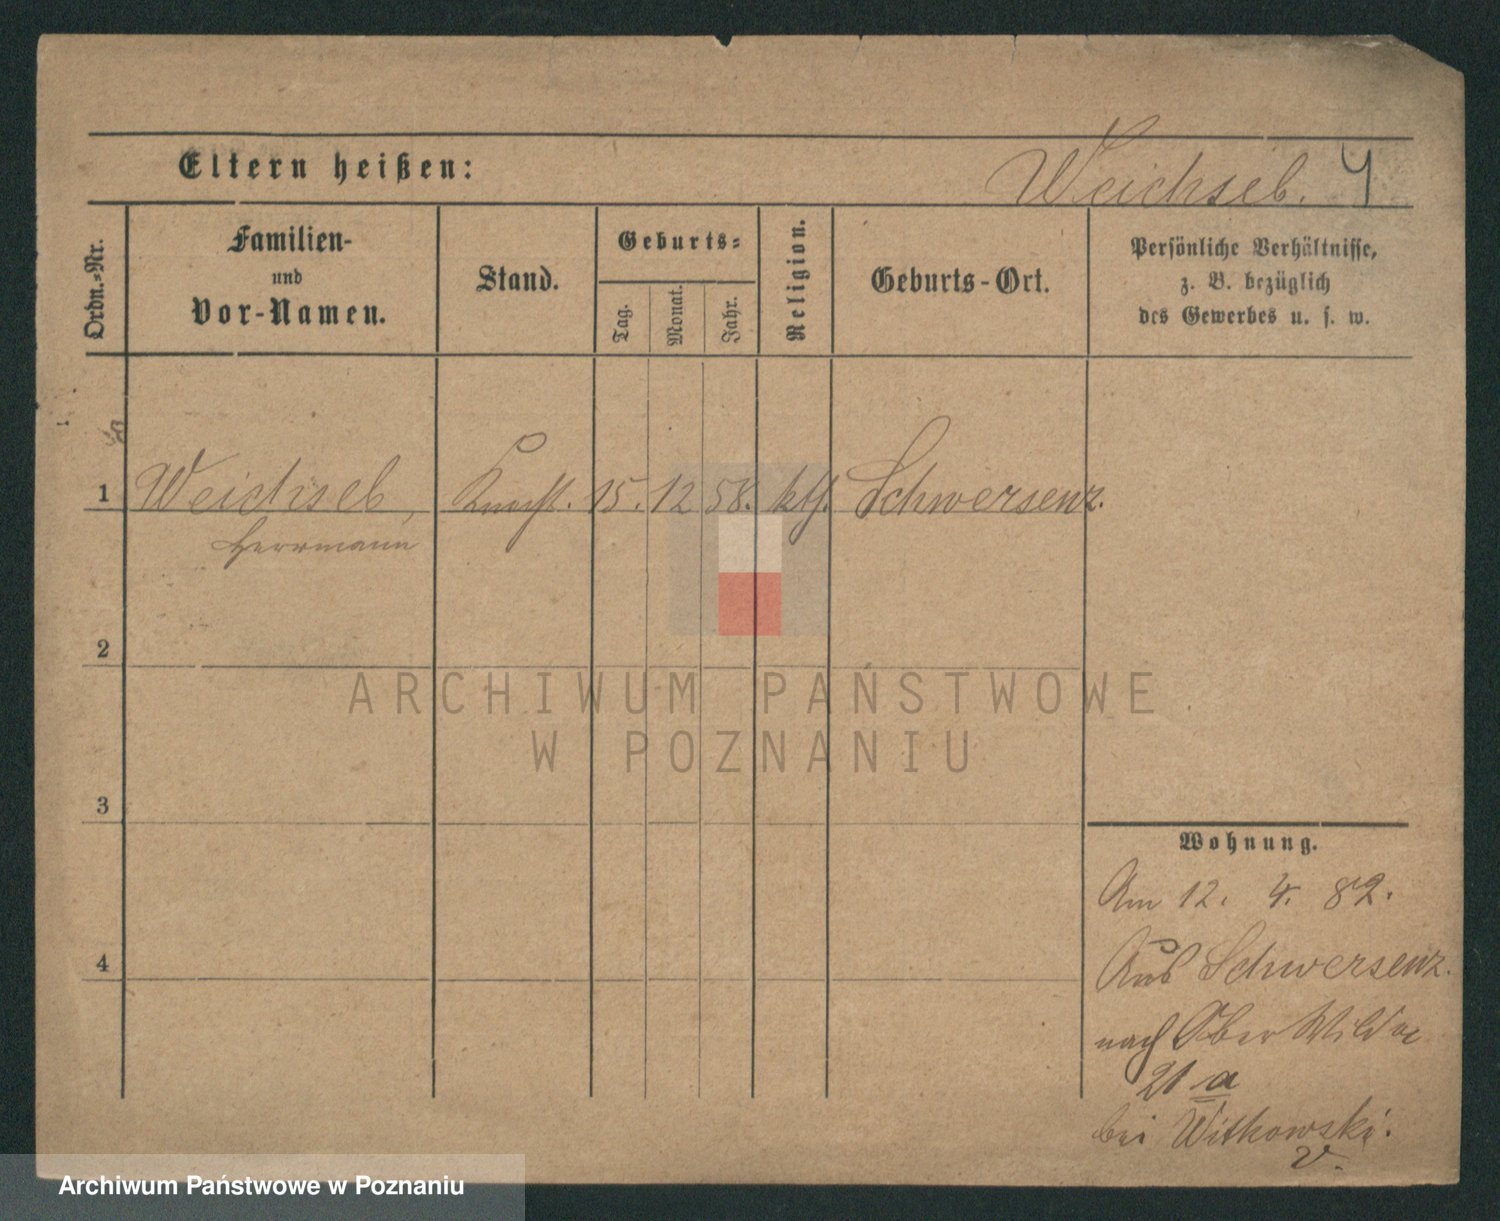 Eltern heißen:
Weichseb. 4
Ordn.-Nr.
Familien-
und
Vor-Namen.
Stand.
Geburts-
Tag.
Monat.
Jahr.
Religion.
Geburts-Ort.
Persönliche Verhältnisse,
z. B. bezüglich
des Gewerbes u. s. w.
1 Weichseb, 15. 12 58. kth. Schwersenz.
Herrmann
2
3
4
ARCHIWUM PAŃSTWOWE
W POZNANIU
Wohnung.
Am 12. 4. 82.
Aus Schwersenz.
nach Ober Wilda
21 a
bei Witkowski.
Archiwum Państwowe w Poznaniu